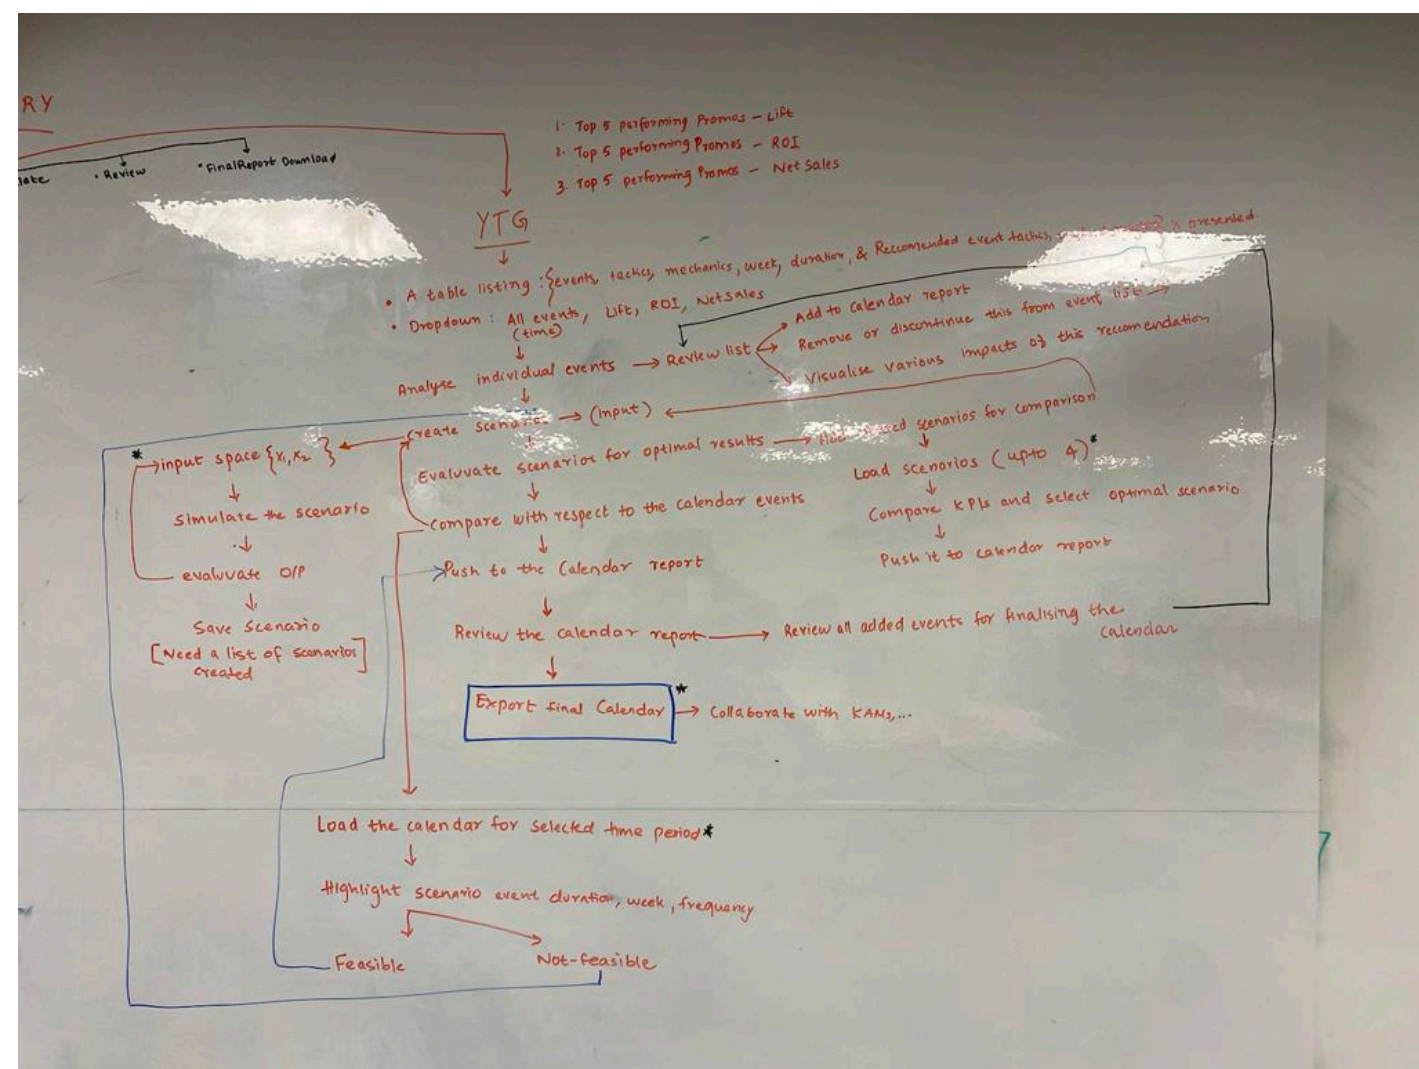 RY
• Review
• Final Report Download
1. Top 5 performing Promos – Lift
2. Top 5 performing Promos – ROI
3. Top 5 performing Promos – Net Sales
YTG
• A table listing : {events, tactics, mechanics, week, duration, & Reccomended event tactics, } is presented.
• Dropdown : All events, Lift, ROI, Net Sales
(time)
Analyse individual events → Review list
Add to calendar report
Remove or discontinue this from event list →
Visualise various impacts of this recomendation
Create scenarios → (Input)
Evaluvate scenarios for optimal results → scenarios for comparison
Compare with respect to the calendar events
Push to the Calendar report
Review the calendar report → Review all added events for finalising the
Calendar
Export final Calendar * → Collaborate with KAMs,...
* input space {x1, x2 }
Simulate the scenario
evaluvate O/P
Save Scenario
[Need a list of scenarios]
created
Load scenarios (upto 4)*
Compare KPIs and select optimal scenario
Push it to calendar report
Load the calendar for selected time period*
Highlight scenario event duration, week, frequency
Feasible
Not-feasible